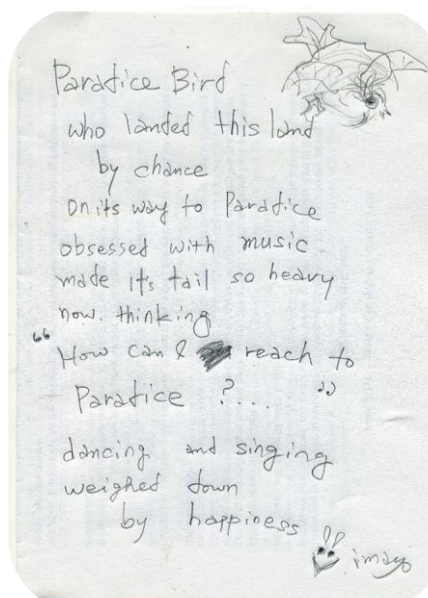 Paradice Bird
who landed this land
by chance
on its way to Paradice
obsessed with music
made it's tail so heavy
now. thinking
“How can I reach to
Paradice ?... ”
dancing and singing
weighed down
by happiness
imayo